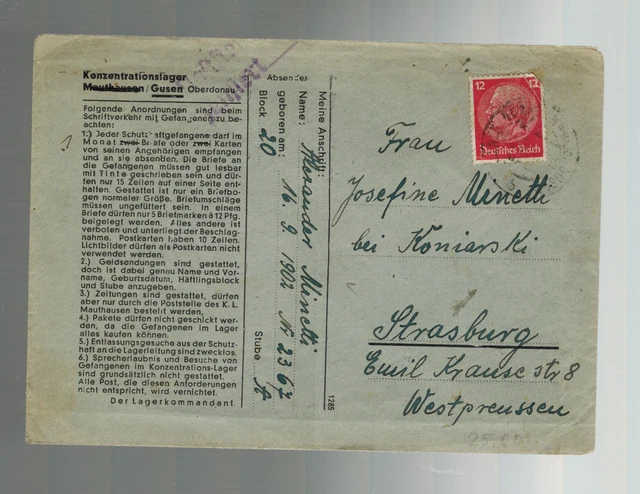 Konzentrationslager
Mauthausen / Gusen Oberdonau
Folgende Anordnungen sind beim
Schriftverkehr mit Gefangenen zu be-
achten:
1.) Jeder Schutzhaftgefangene darf im
Monat zwei Briefe oder zwei Karten
von seinen Angehörigen empfangen
und an sie absenden. Die Briefe an
die Gefangenen müssen gut lesbar
mit Tinte geschrieben sein und dür-
fen nur 15 Zeilen auf einer Seite ent-
halten. Gestattet ist nur ein Briefbo-
gen normaler Größe. Briefumschläge
müssen ungefüttert sein. In einem
Briefe dürfen nur 5 Briefmarken à 12 Pfg.
beigelegt werden. Alles andere ist
verboten und unterliegt der Beschlag-
nahme. Postkarten haben 10 Zeilen.
Lichtbilder dürfen als Postkarten nicht
verwendet werden.
2.) Geldsendungen sind gestattet,
doch ist dabei genau Name und Vor-
name, Geburtsdatum, Häftlingsblock
und Stube anzugeben.
3.) Zeitungen sind gestattet, dürfen
aber nur durch die Poststelle des K. L.
Mauthausen bestellt werden,
4.) Pakete dürfen nicht geschickt wer-
den, da die Gefangenen im Lager
alles kaufen können.
5.) Entlassungsgesuche aus der Schutz-
haft an die Lagerleitung sind zwecklos.
6.) Sprecherlaubnis und Besuche von
Gefangenen im Konzentrations-Lager
sind grundsätzlich nicht gestattet.
Alle Post, die diesen Anforderungen
nicht entspricht, wird vernichtet.
Der Lagerkommandant.
Absender
Meine Anschrift:
Name: Alexander Minetti
geboren am: 16. 9. 1902 Nr 2367
Block 20 Stube A.
1285
12 12
Deutsches Reich
Frau
Josefine Minetti
bei Koniarski
Strasburg
Emil Krause str 8
Westpreussen